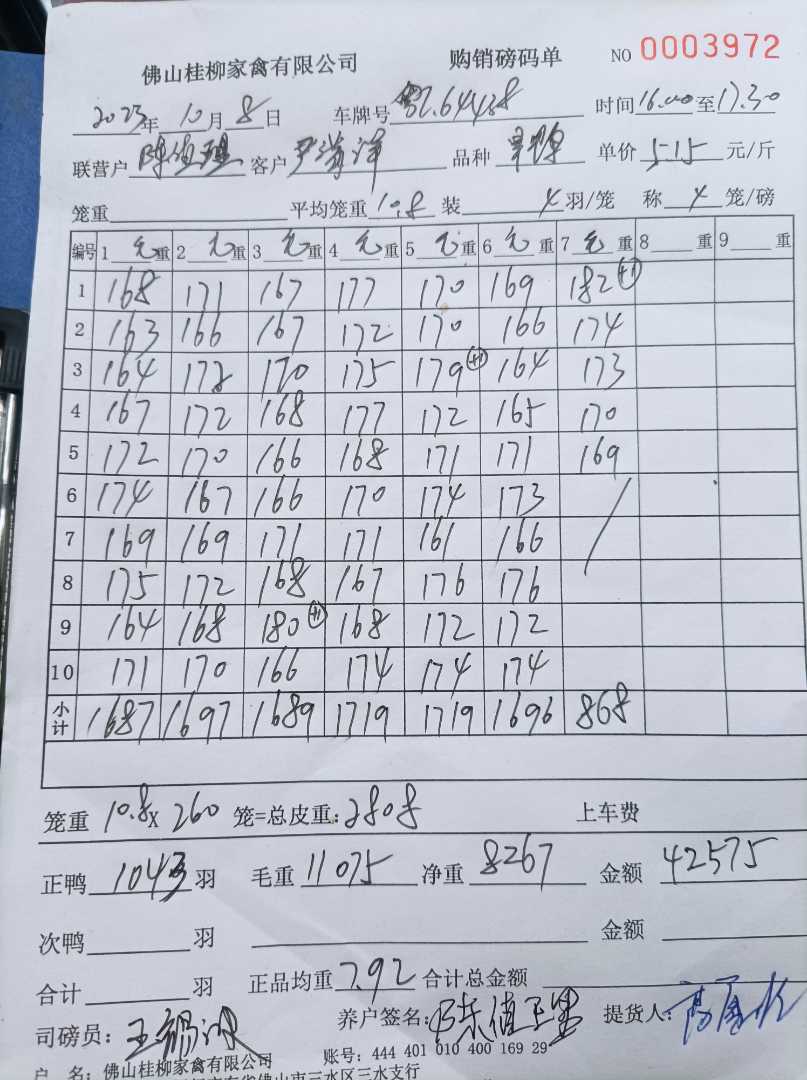 佛山桂柳家禽有限公司 购销磅码单 NO 0003972
2023年 10月 8日 车牌号 64438 时间 16.00 至 17.30
联营户 客户 品种 单价 5.15 元/斤
笼重 平均笼重 10.8 装 4 羽/笼 称 4 笼/磅
编号 1 毛重 2 毛重 3 毛重 4 毛重 5 毛重 6 毛重 7 毛重 8 重 9 重
1 168 171 167 177 170 169 182 (+1)
2 163 166 167 172 170 166 174
3 164 172 170 175 179 (+1) 164 173
4 167 172 168 177 172 165 170
5 172 170 166 168 171 171 169
6 174 167 166 170 174 173
7 169 169 171 171 161 166
8 175 172 168 167 176 176
9 164 168 180 (+1) 168 172 172
10 171 170 166 174 174 174
小计 1687 1697 1689 1719 1719 1696 868
笼重 10.8 X 260 笼=总皮重: 2808 上车费
正鸭 1043 羽 毛重 11075 净重 8267 金额 42575
次鸭 羽 金额
合计 羽 正品均重 7.92 合计总金额
司磅员: 养户签名: 提货人:
户 名: 佛山桂柳家禽有限公司 账号: 444 401 010 400 169 29
佛山市三水区三水支行